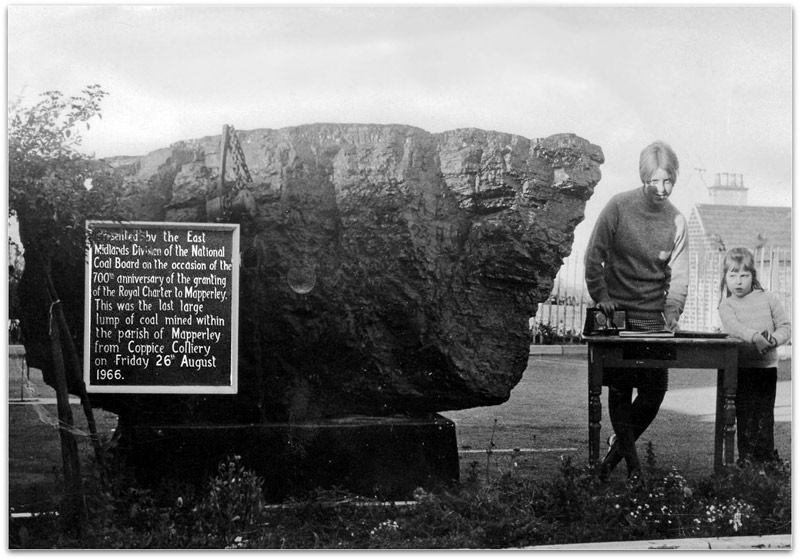 Presented by the East
Midlands Division of the National
Coal Board on the occasion of the
700th anniversary of the granting
of the Royal Charter to Mapperley.
This was the last large
lump of coal mined within
the parish of Mapperley
from Coppice Colliery
on Friday 26th August
1966.